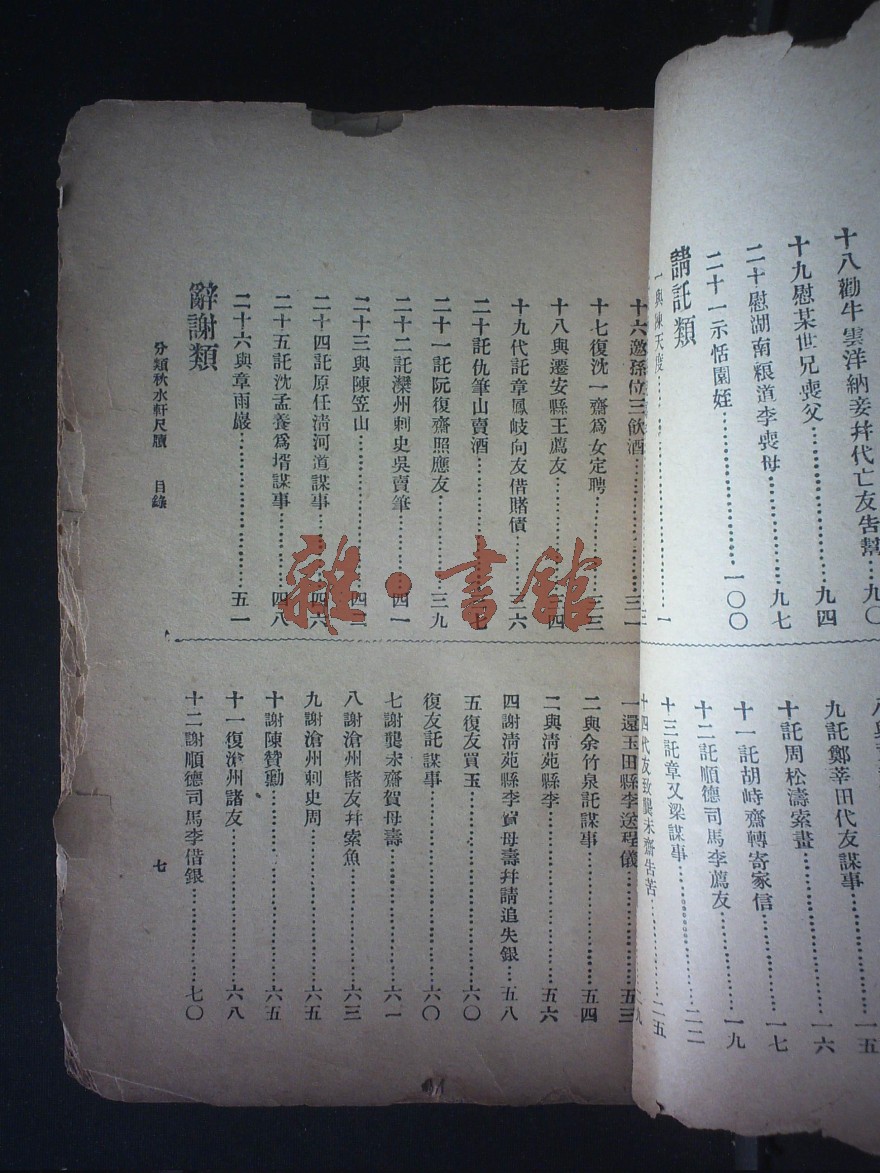 十八勸牛雲洋納妾幷代亡友吿幫⋯⋯九〇
十九慰某世兄喪父⋯⋯九四
二十慰湖南粮道李喪母⋯⋯九七
二十一示恬園姪⋯⋯一〇〇
請託類
一與陳天度⋯⋯一
九託鄭莘田代友謀事⋯⋯一五
十託周松濤索畫⋯⋯一六
十一託胡峙齋轉寄家信⋯⋯一七
十二託順德司馬李薦友⋯⋯一九
十三託章又梁謀事⋯⋯二二
十四代友致龔未齋吿苦⋯⋯二五
十六邀孫位三飲酒⋯⋯三一
十七復沈一齋爲女定聘⋯⋯三三
十八與遷安縣王薦友⋯⋯三四
十九代託章鳳岐向友借賭債⋯⋯三六
二十託仇筆山賣酒⋯⋯三七
二十一託阮復齋照應友⋯⋯三九
二十二託灤州刺史吳賣筆⋯⋯四一
二十三與陳笠山⋯⋯四二
二十四託原任淸河道謀事⋯⋯四六
二十五託沈孟養爲壻謀事⋯⋯四八
二十六與章雨巖⋯⋯五一
辭謝類
一還玉田縣李送程儀⋯⋯五三
二與余竹泉託謀事⋯⋯五四
二與淸苑縣李⋯⋯五六
四謝淸苑縣李賀母壽幷請追失銀⋯⋯五八
五復友買玉⋯⋯六〇
復友託謀事⋯⋯六〇
七謝龔未齋賀母壽⋯⋯六一
八謝滄州諸友幷索魚⋯⋯六三
九謝滄州刺史周⋯⋯六五
十謝陳贊勷⋯⋯六五
十一復滄州諸友⋯⋯六八
十二謝順德司馬李借銀⋯⋯七〇
分類秋水軒尺牘 目錄
七
雜·書館